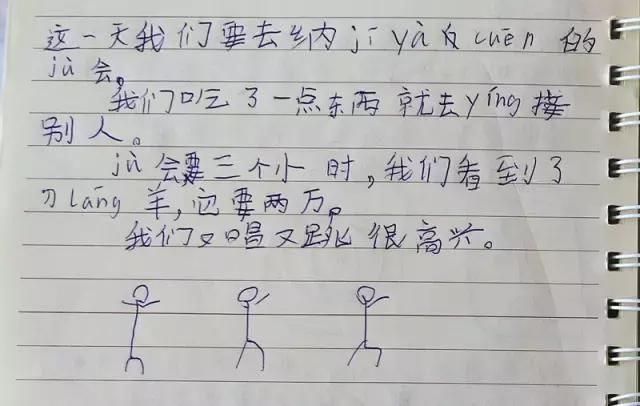 这一天我们要去纳 jī yà cuēn 的
jù 会。
我们吃了一点东西就去 yíng 接
别人。
jù 会要三个小时,我们看到了
lāng 羊,它要两万。
我们又唱又跳很高兴。